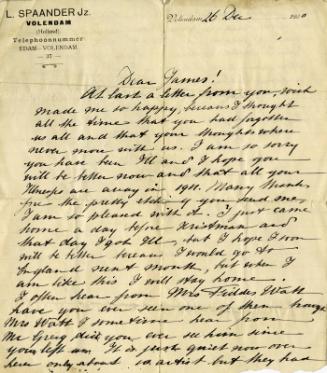 L. SPAANDER Jz.
VOLENDAM
(Holland)
Telephoonnummer
EDAM-VOLENDAM
37
Volendam, 26 Dec 1910
Dear James!
At last a letter from you, wich
made me so happy, becaus I thought
all the time that you had forgotten
us all and that your thoughts where
never more with us. I am so sorry
you have been Ill and I hope you
will be better now and that all your
Illness are away in 1911. Many thanks
for the pretty etching you send me,
I am so pleased with it. I just came
home a day before Kristmas and
that day I got Ill, but I hope I soon
will be better becaus I would go to
England next month, but when I
am like this I will stay home.
I often hear from Mrs Fiddes Watt
have you ever seen one of them
Mrs Watt I sometime hear from
Mr Greig did you ever see him since
your left arm. It is such quiet now over
here only about 10 artist but they had